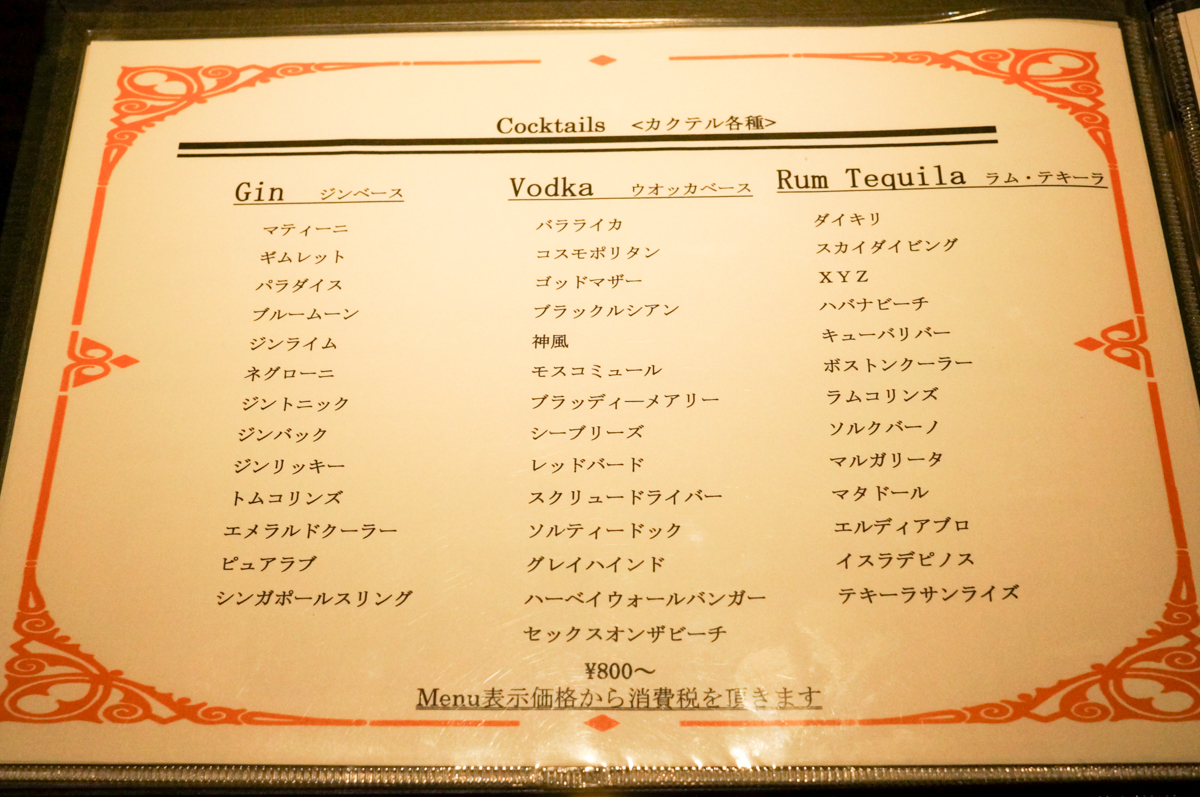 Cocktails <カクテル各種>
Gin ジンベース
マティーニ
ギムレット
パラダイス
ブルームーン
ジンライム
ネグローニ
ジントニック
ジンバック
ジンリッキー
トムコリンズ
エメラルドクーラー
ピュアラブ
シンガポールスリング
Vodka ウオッカベース
バラライカ
コスモポリタン
ゴッドマザー
ブラックルシアン
神風
モスコミュール
ブラッディ―メアリー
シーブリーズ
レッドバード
スクリュードライバー
ソルティードック
グレイハインド
ハーベイウォールバンガー
セックスオンザビーチ
Rum Tequila ラム・テキーラ
ダイキリ
スカイダイビング
ＸＹＺ
ハバナビーチ
キューバリバー
ボストンクーラー
ラムコリンズ
ソルクバーノ
マルガリータ
マタドール
エルディアブロ
イスラデピノス
テキーラサンライズ
¥800～
Menu表示価格から消費税を頂きます